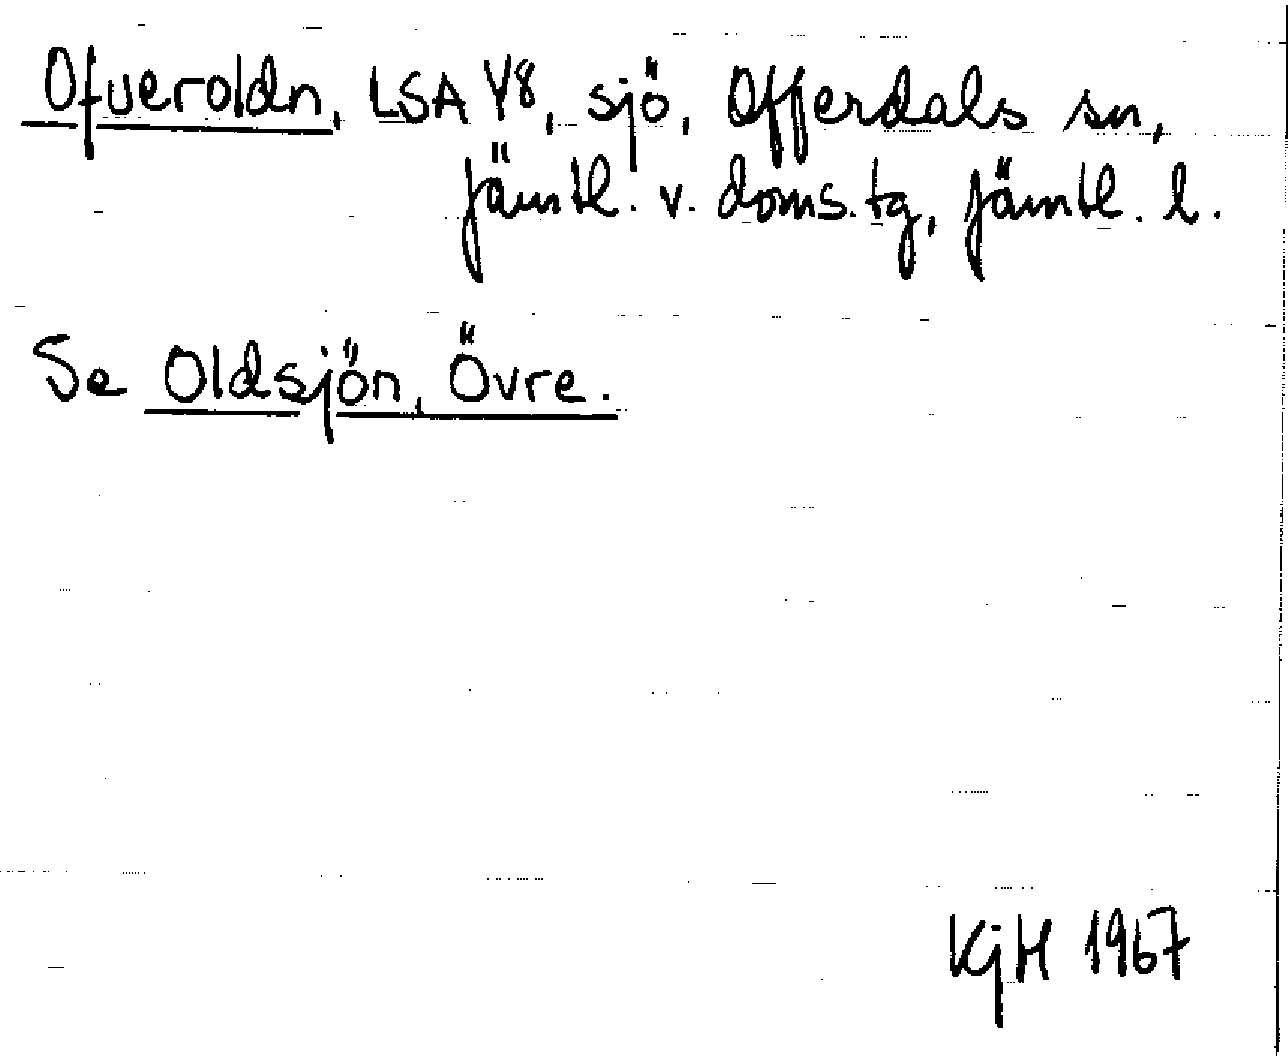 Ofveroldn, LSA Y8, sjö, Offerdals sn,
Jämtl. v. doms.tg, Jämtl. l.
Se Oldsjön, Övre.
KjH 1967